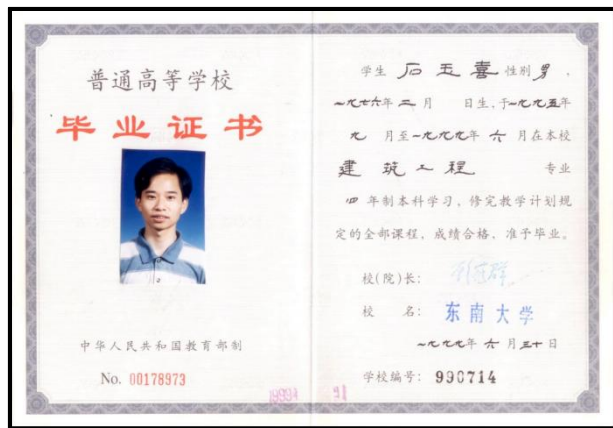 普通高等学校
毕业证书
中华人民共和国教育部制
No. 00178973
学生 石玉喜 性别 男 ,
一九七六年 二 月 日生,于一九九五年
九 月至一九九九年 六 月在本校
建筑工程 专业
四 年制本科学习,修完教学计划规
定的全部课程,成绩合格,准予毕业。
校(院)长:
校 名: 东南大学
一九九九年 六 月三十日
学校编号: 990714